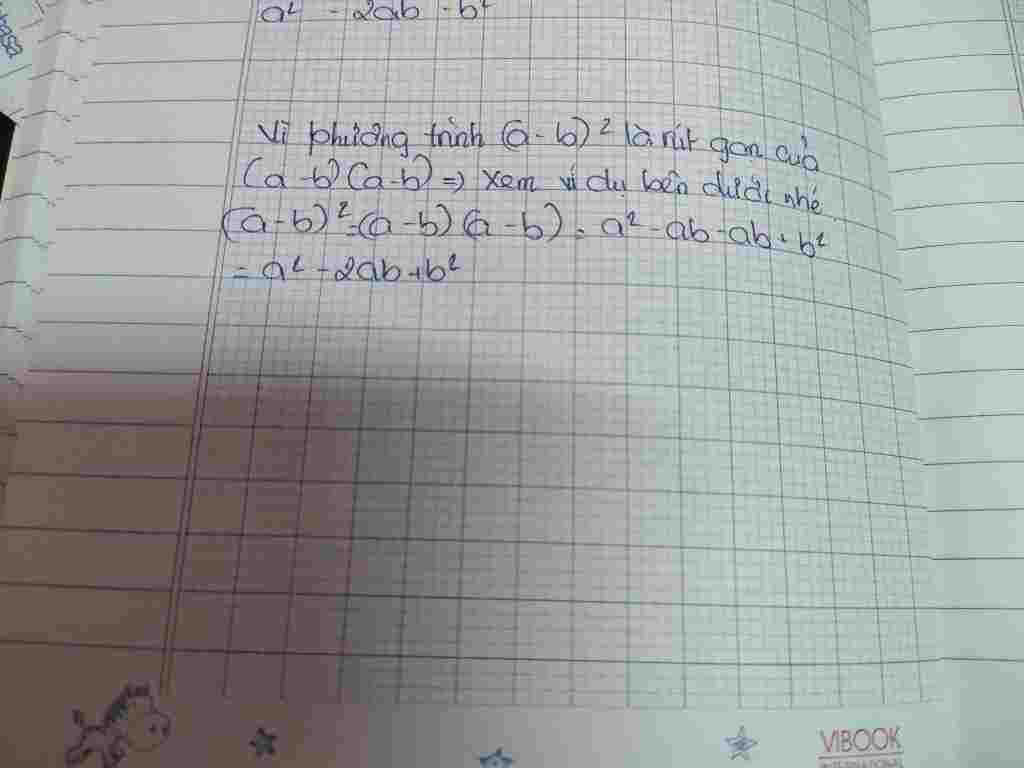 a² - 2ab + b²
Vì phương trình (a-b)² là rút gọn của
(a-b)(a-b) => xem ví dụ bên dưới nhé.
(a-b)² = (a-b)(a-b) = a² - ab - ab + b²
= a² - 2ab + b²
VIBOOK
INTERNATIONAL